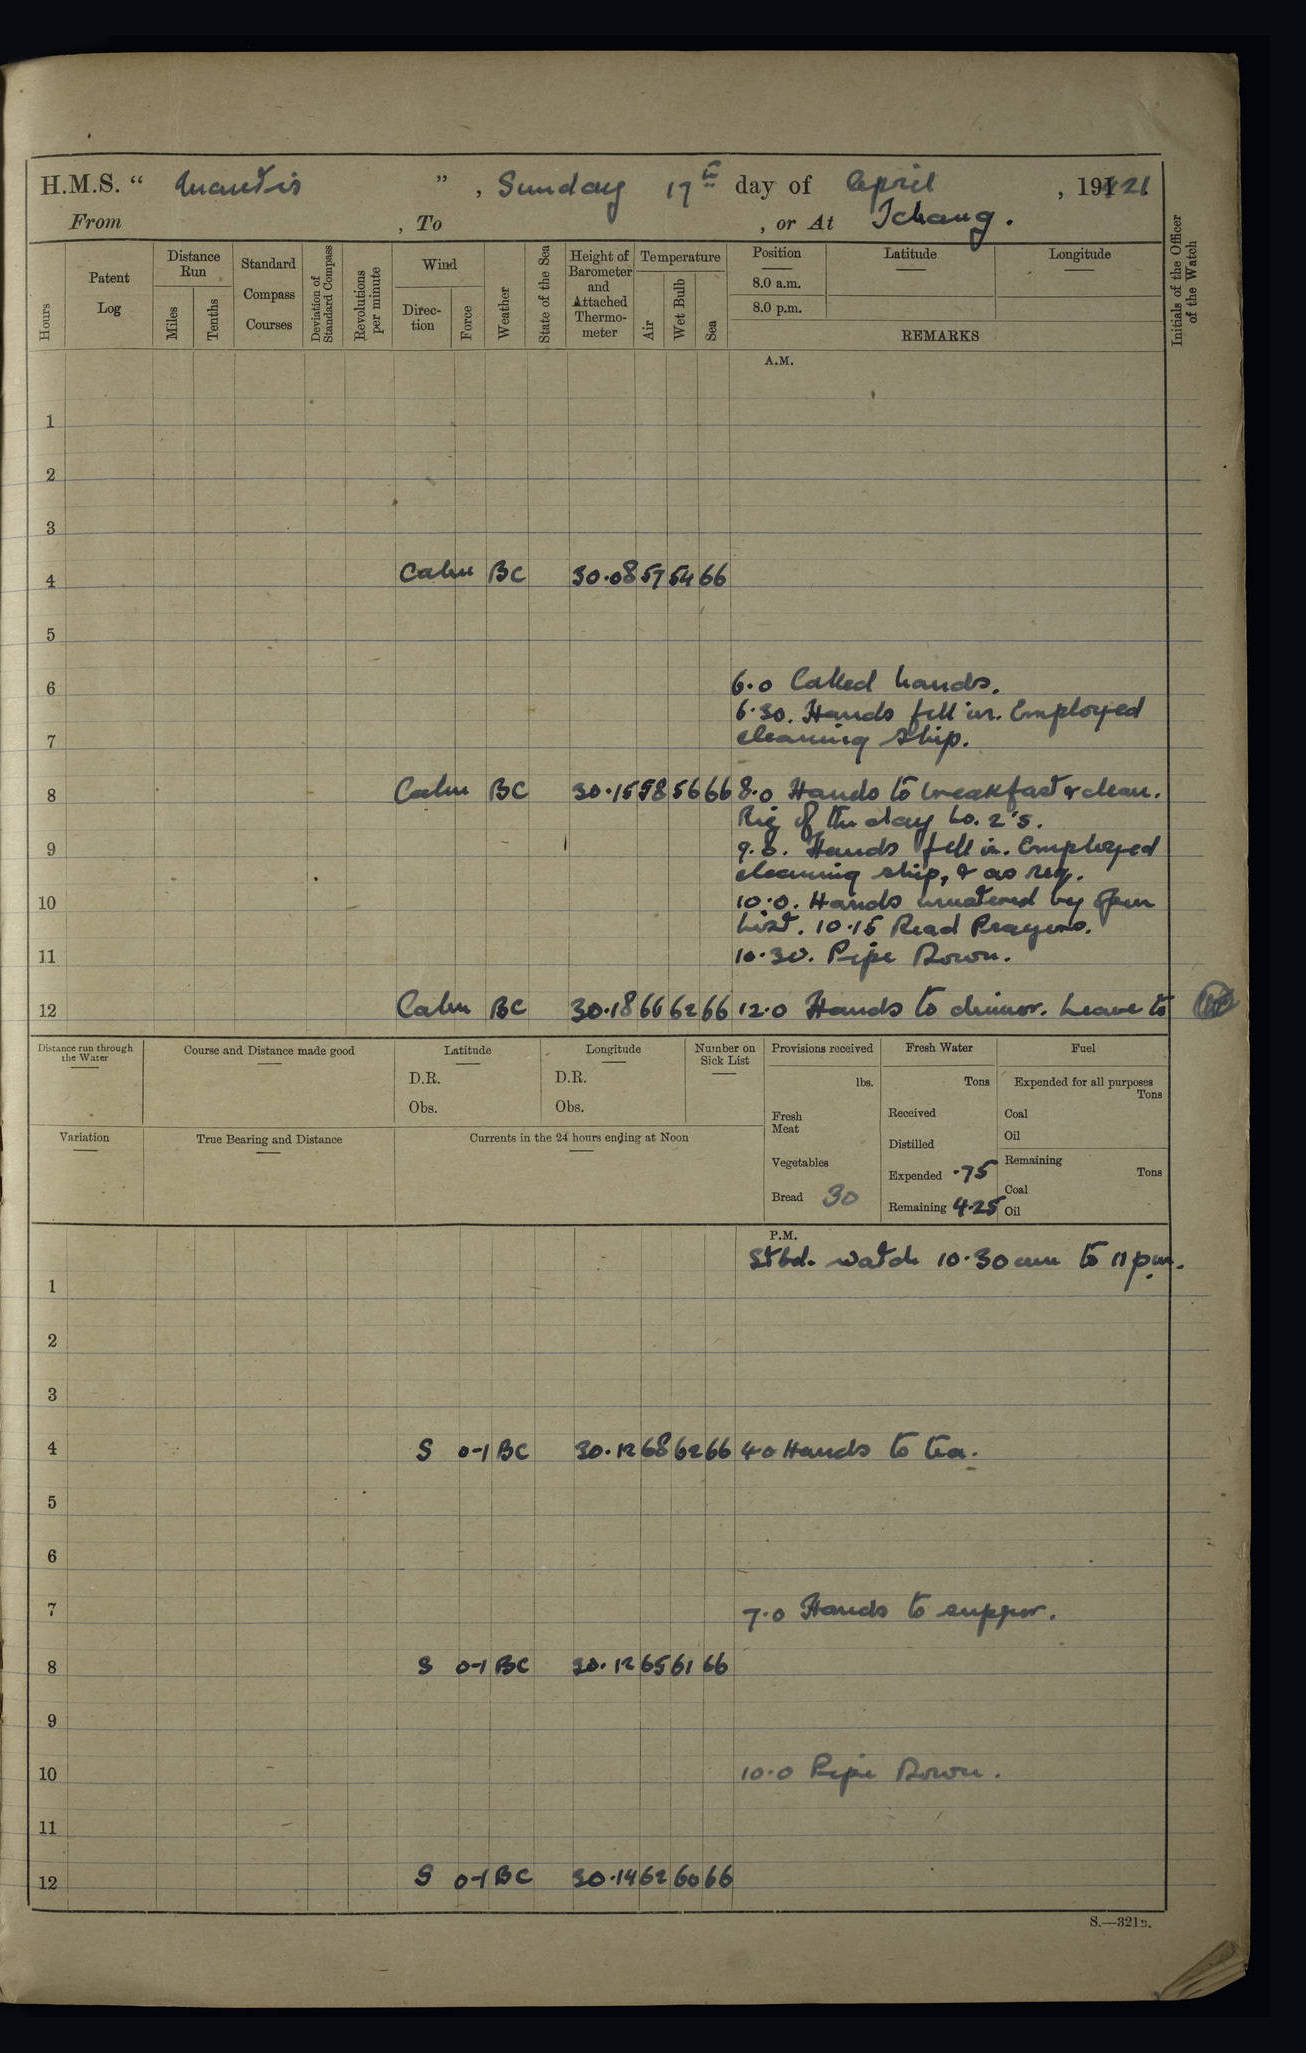 H.M.S. " Mantis " , Sunday 17th day of April , 1921
From , To , or At Ichang.
Hours
Patent Log
Distance Run
Miles
Tenths
Standard Compass Courses
Deviation of Standard Compass
Revolutions per minute
Wind
Direction
Force
Weather
State of the Sea
Height of Barometer and Attached Thermometer
Temperature
Air
Wet Bulb
Sea
Position
8.0 a.m.
8.0 p.m.
Latitude
Longitude
REMARKS
Initials of the Officer of the Watch
A.M.
1
2
3
4 Calm BC 30.08 57 54 66
5
6 6.0 Called hands.
6.30. Hands fell in. Employed
7 cleaning ship.
8 Calm BC 30.15 58 56 66 8.0 Hands to breakfast & clean.
Rig of the day No. 2's.
9 9.0. Hands fell in. Employed
cleaning ship, & as req.
10 10.0. Hands mustered by Open
List. 10.15 Read Prayers.
11 10.30. Pipe Down.
12 Calm BC 30.18 66 62 66 12.0 Hands to dinner. Leave to
Distance run through the Water
Course and Distance made good
Latitude
D.R.
Obs.
Longitude
D.R.
Obs.
Number on Sick List
Provisions received
lbs.
Fresh Meat
Vegetables
Bread 30
Fresh Water
Tons
Received
Distilled
Expended .75
Remaining 4.25
Fuel
Expended for all purposes
Tons
Coal
Oil
Remaining
Tons
Coal
Oil
Variation
True Bearing and Distance
Currents in the 24 hours ending at Noon
P.M.
Stbd. watch 10.30 am to 11 pm.
1
2
3
4 S 0-1 BC 30.12 68 62 66 4.0 Hands to tea.
5
6
7 7.0 Hands to supper.
8 S 0-1 BC 30.12 65 61 66
9
10 10.0 Pipe Down.
11
12 S 0-1 BC 30.14 62 60 66
S.—321B.